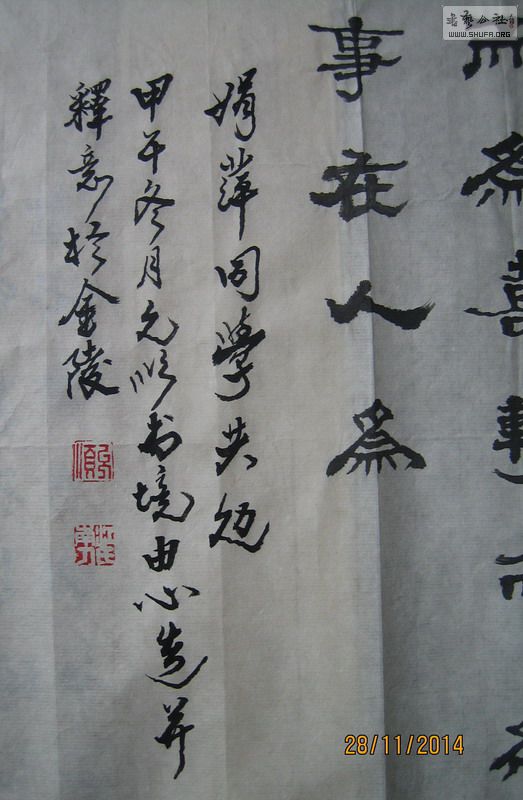 为喜
事在人為
娟萍同學共勉
甲午冬月元順书境由心造并
釋意於金陵
书艺公社
WWW.SHUFA.ORG
28/11/2014